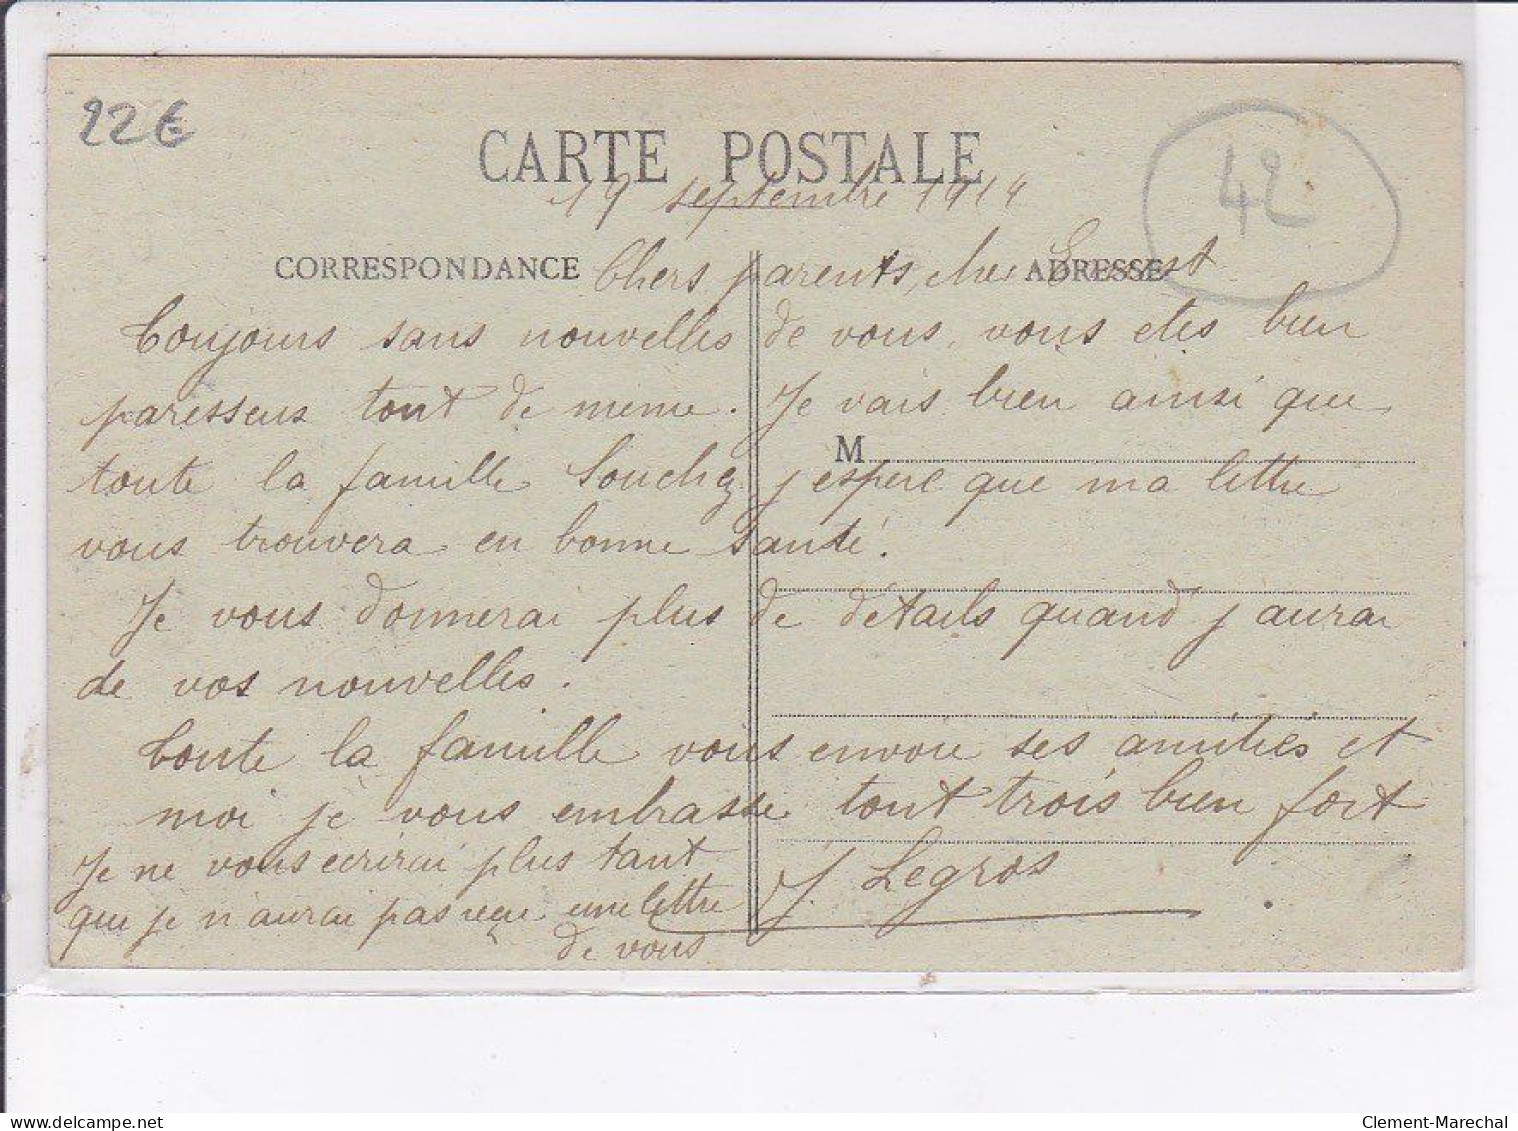 22€
42
CARTE POSTALE
19 septembre 1914
CORRESPONDANCE
ADRESSE
Chers parents, cher Ernest
Toujours sans nouvelles de vous, vous etes bien
paresseux tout de meme. Je vais bien ainsi que
M
toute la famille Souchez j espere que ma lettre
vous trouvera en bonne santé.
Je vous donnerai plus de détails quand j aurai
de vos nouvelles.
Toute la famille vous envoie ses amitiés et
moi je vous embrasse tout trois bien fort
Je ne vous ecrirai plus tant
que je n aurai pas reçu une lettre
de vous
J. Legros
Clement-Marechal